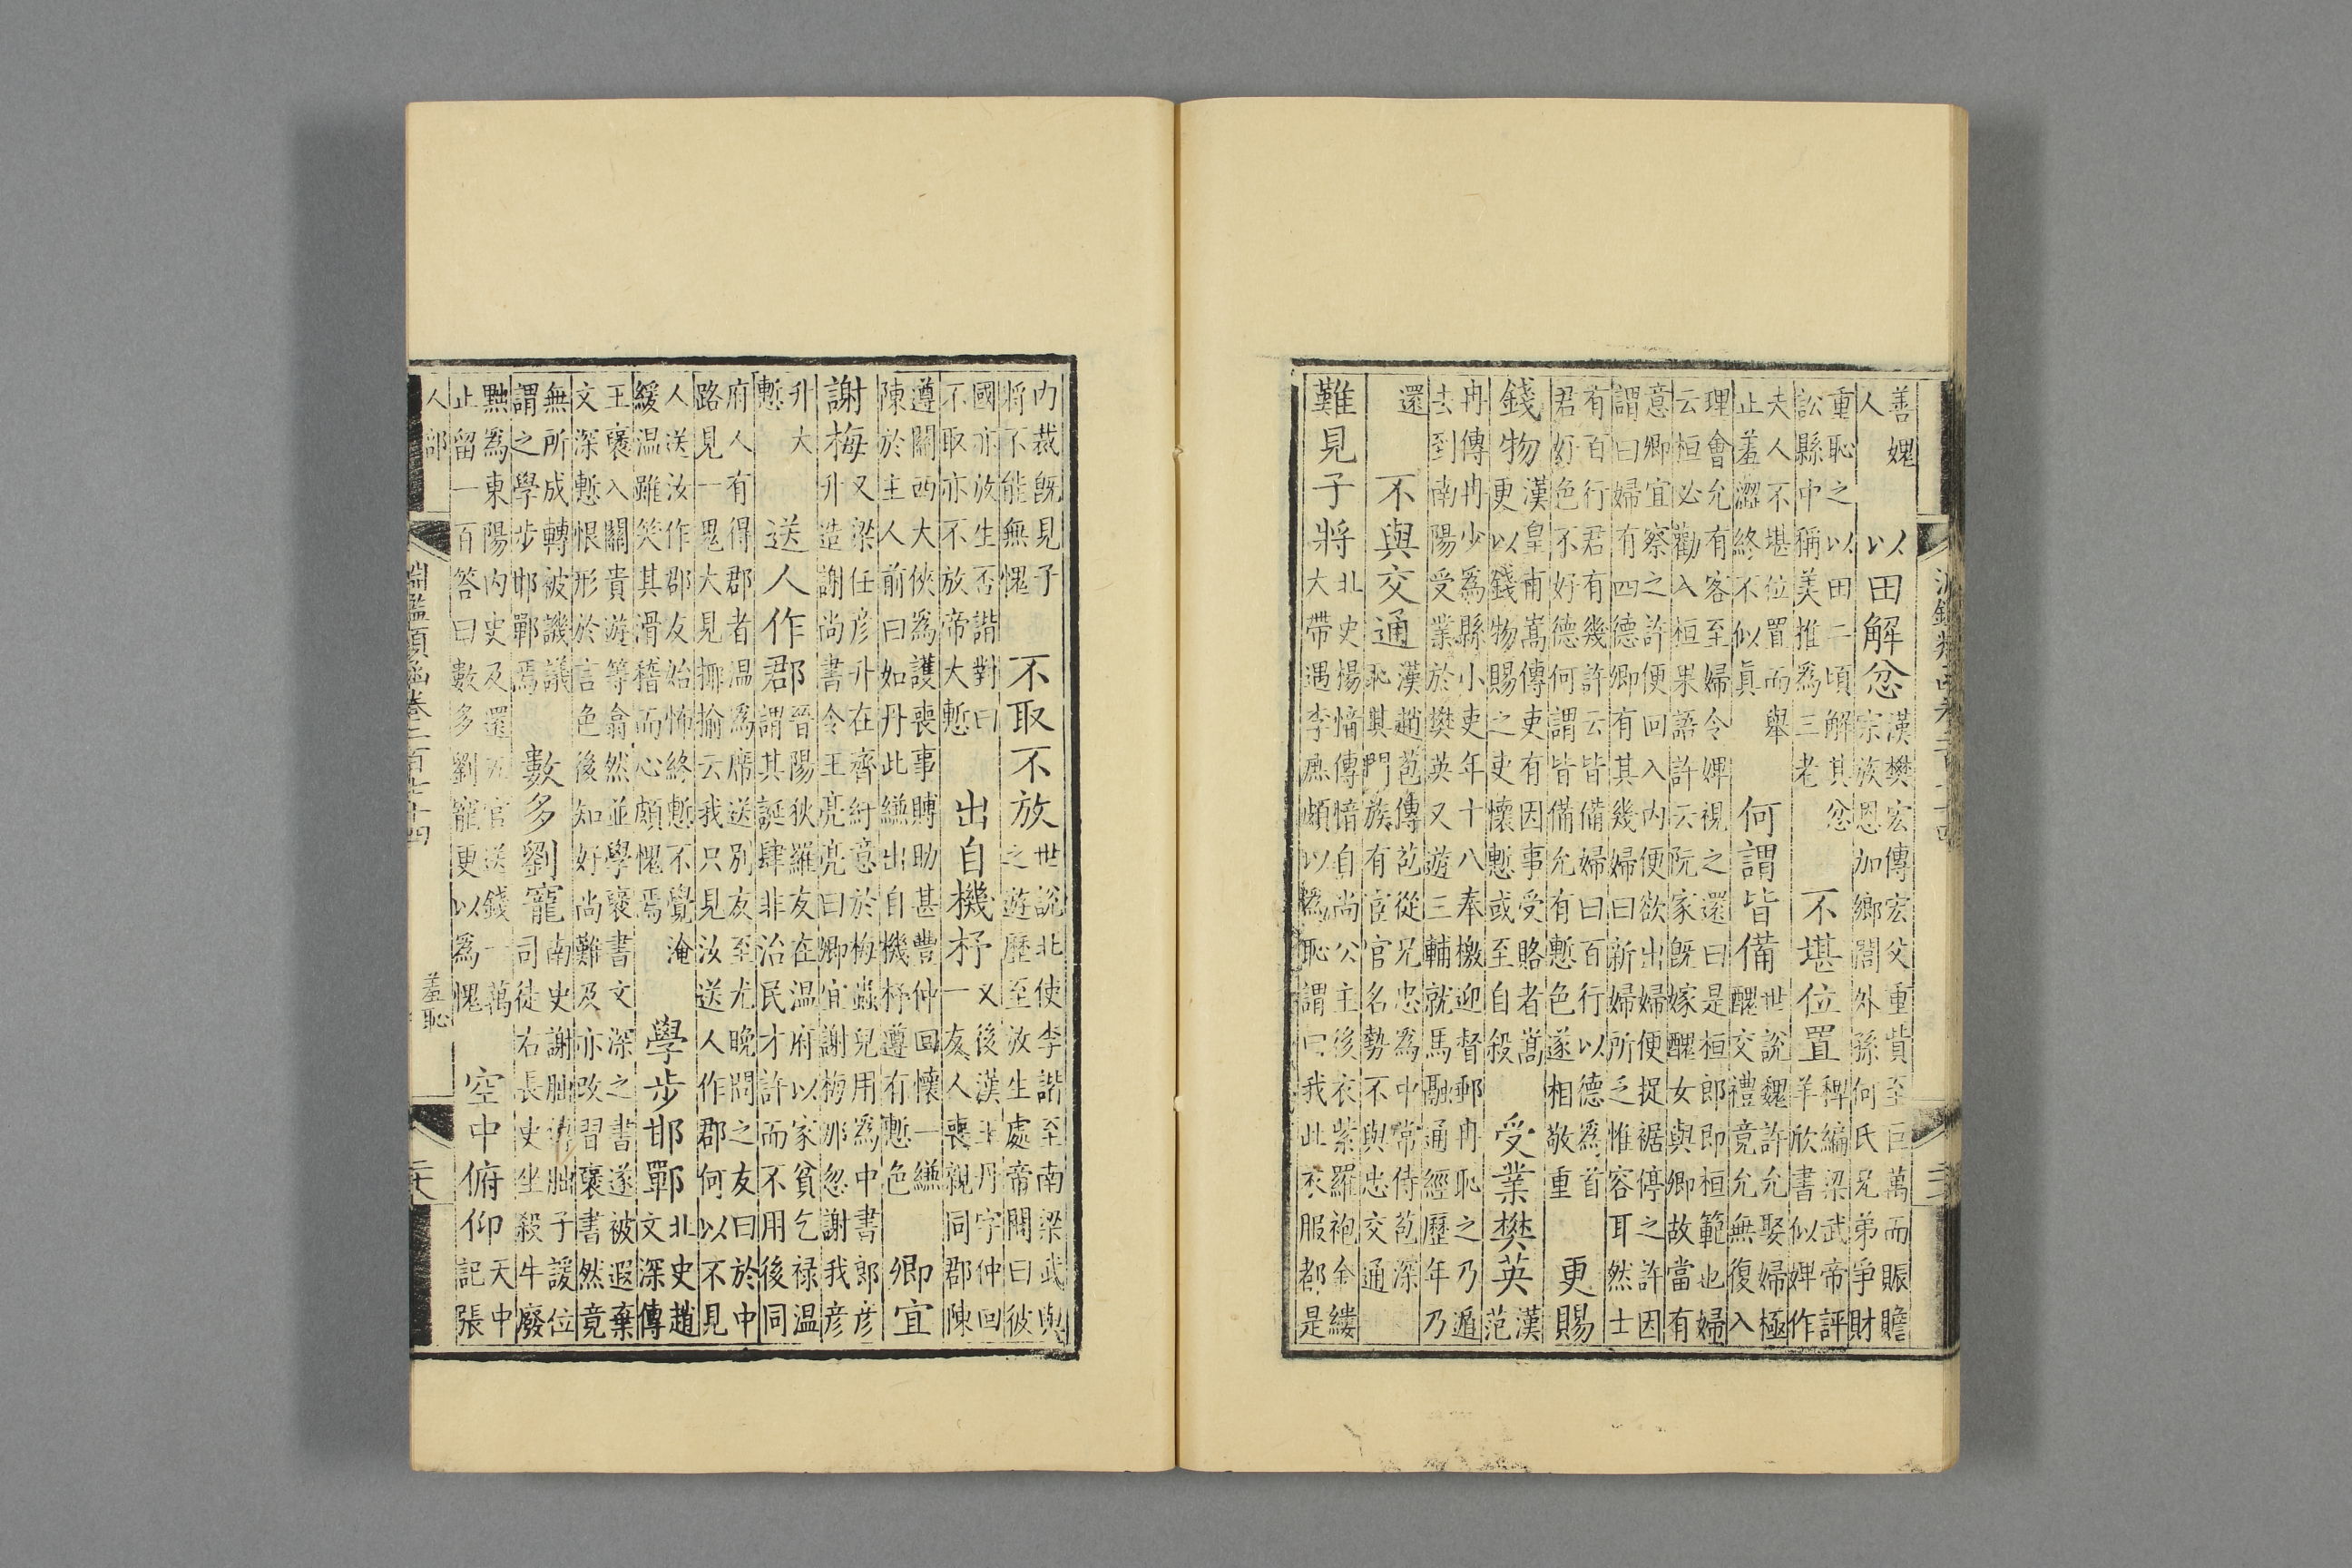 善媿
人
以田解忿
漢樊宏傳宏父重貲至巨萬而賑贍
宗族恩加鄉閭外孫何氏兄弟爭財
重恥之以田二頃解其忿
訟縣中稱美推為三老
不堪位置
稗編梁武帝評
羊欣書似婢作
夫人不堪位置而舉
止羞澀終不似真
何謂皆備
世說魏許允娶婦極
醜交禮竟允無復入
理會允有客至婦令婢視之還曰是桓郎即桓範也婦
云桓必勸入桓果語許云阮家既嫁醜女與卿故當有
意卿宜察之許便回入內便欲出婦便捉裾停之許因
謂曰婦有四德卿有其幾婦曰新婦所乏惟容耳然士
有百行君有幾許云皆備婦曰百行以德為首
君好色不好德何謂皆備允有慙色遂相敬重
更賜
錢物
漢皇甫嵩傳吏有因事受賂者嵩
更以錢物賜之吏懷慙或至自殺
受業樊英
漢
范
冉傳冉少為縣小吏年十八奉檄迎督郵冉恥之乃遁
去到南陽受業於樊英又遊三輔就馬融通經歷年乃
還
不與交通
漢趙苞傳苞從兄忠為中常侍苞深
恥其門族有宦官名勢不與忠交通
難見子將
北史楊愔傳愔自尚公主後衣紫羅袍金縷
大帶遇李庶頗以為恥謂曰我此衣服都是
內裁既見子
將不能無愧
不取不放
世說北使李諧至南梁武與
之遊歷至放生處帝問曰彼
國亦放生否諧對曰
不取亦不放帝大慙
出自機杼
又後漢王丹字仲回
一友人喪親同郡陳
遵關西大俠為護喪事賻助甚豐仲回懷一縑
陳於主人前曰如丹此縑出自機杼遵有慙色
卿宜
謝梅
又梁任彥升在齊紆意於梅蟲兒用為中書郎彥
升造謝尚書令王亮亮曰卿宜謝梅那忽謝我彥
升大
慙
送人作郡
晉陽狄羅友在温府以家貧乞祿温
謂其誕肆非治民才許而不用後同
府人有得郡者温為席送別友至尤晚問之友曰於中
路見一鬼大見揶揄云我只見汝送人作郡何以不見
人送汝作郡友始怖終慙不覺淹
緩温雖笑其滑稽而心頗愧焉
學步邯鄲
北史趙
文深傳
王襃入關貴遊等翕然並學襃書文深之書遂被遐棄
文深慙恨形於言色後知好尚難及亦改習襃書然竟
無所成轉被譏議
謂之學步邯鄲焉
數多劉寵
南史謝朏朏子諼位
司徒右長史坐殺牛廢
黜為東陽內史及還五官送錢一萬
止留一百答曰數多劉寵更以為愧
空中俯仰
天中
記張
人部
淵鑑類函卷三百二十四
羞恥